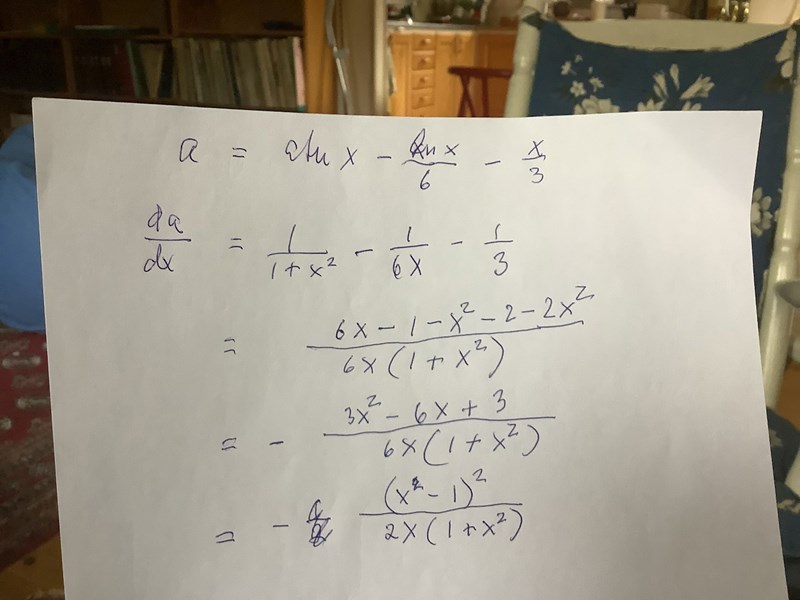 a = atn x - ln x / 6 - x / 3
da / dx = 1 / 1 + x² - 1 / 6x - 1 / 3
= 6x - 1 - x² - 2 - 2x² / 6x (1 + x²)
= - 3x² - 6x + 3 / 6x (1 + x²)
= - (x - 1)² / 2x (1 + x²)